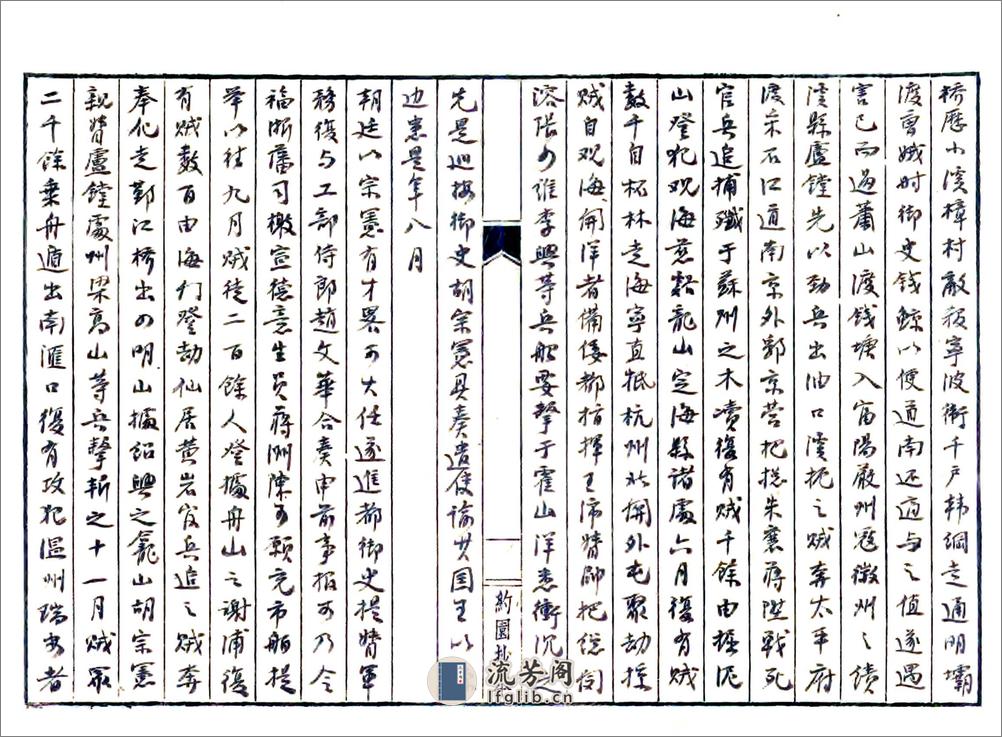 桥歷小溪樟村敵殺寧波衛千户韩綱走通明壩
渡曹娥时御史钱鲸以便道南还適与之值遂遇
害已而過蕭山渡钱塘入富陽嚴州寇徽州之績
溪縣盧鏜先以劲兵出油口溪扼之贼奔太平府
渡采石口道南京外郭京营把捴朱襄蒋陞戰死
官兵追捕殲于蘇州之木凟復有贼千餘由
山登犯观海慈谿龍山定海縣諸處六月復有贼
数千自柘林走海寧直抵杭州北関外屯聚劫掠
贼自观海開洋者備倭都指揮王沛督帥把總
張四维李興等兵船要擊于霍山洋悉衝沉之
先是巡按御史胡宗憲具奏遣使諭其国王以
边患是年八月
朝廷以宗憲有才畧可大任遂進都御史提督軍
務復与工部侍郎趙文華合奏申前事报可乃令
福浙藩司檄宣德意生員蒋洲陳可願充市舶提
举以往九月贼徒二百餘人登據舟山之谢浦復
有贼数百由海门登劫仙居黄岩官兵追之贼奔
奉化走鄞江橋出四明山據紹興之龕山胡宗憲
親督盧鏜處州梁高山等兵擊斬之十一月贼眾
二千餘乗舟遁出南滙口復有攻犯温州瑞安者
約園抄
流芳阁
lfglib.cn